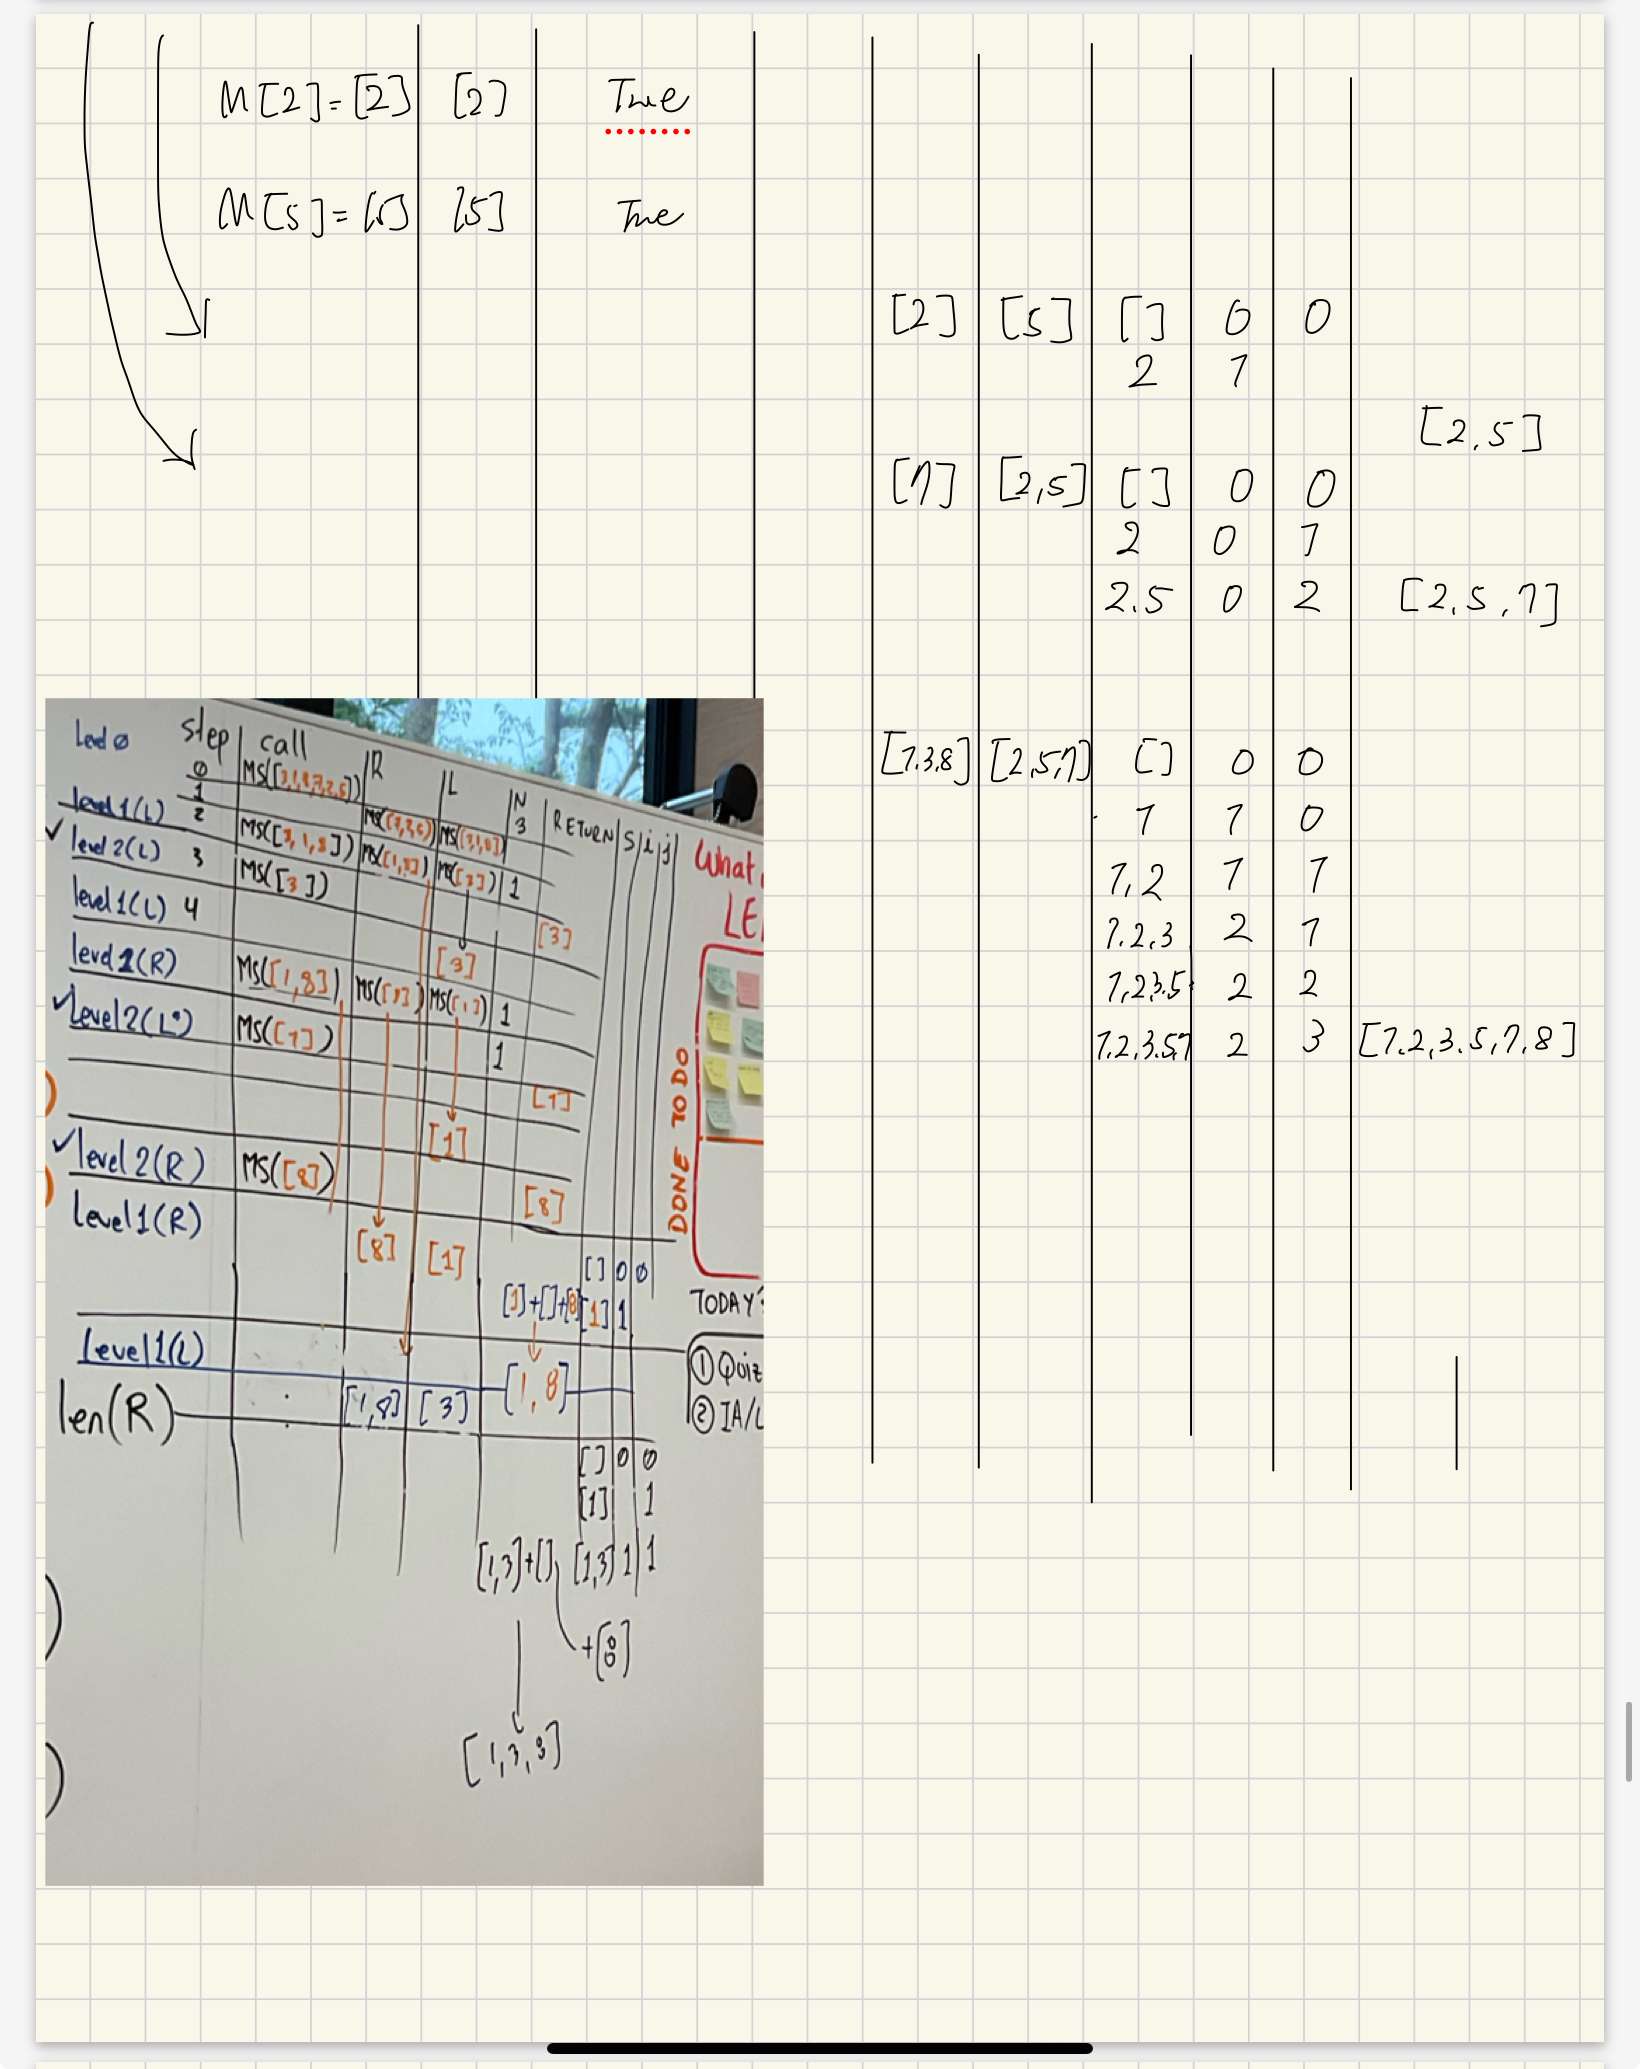 M[2]=[2] [2] True
M[5]=[5] [5] True
[2] [5] [] 0 0
2 1
[2,5]
[7] [2,5] [] 0 0
2 0 1
2.5 0 2 [2,5,7]
[1.3.8] [2,5,7] [] 0 0
1 1 0
1,2 1 1
1.2,3 2 1
1,2,3.5 2 2
1.2,3.5,7 2 3 [1.2,3.5,7,8]
Level ø step call R L N RETURN S i j
0 MS([3,1,8,7,2,5])
1 3
level 1(L) 2 MS([3,1,8]) MS([1,8]) MS([3]) 1
level 2(L) 3 MS([3])
[3]
level 1(L) 4 [3]
level 1(R) MS([1,8]) MS([8]) MS([1]) 1
level 2(L) MS([1]) 1
[1]
[1]
level 2(R) MS([8])
[8]
level 1(R) [8] [1]
[] 0 0
[1]+[]+[8] [1] 1
level 1(L) [1,8]
len(R) [1,8] [3]
[] 0 0
[1] 1
[1,3]+[] [1,3] 1 1
+[8]
[1,3,8]
What
LE
DONE TO DO
TODAY
① Quiz
② IA/